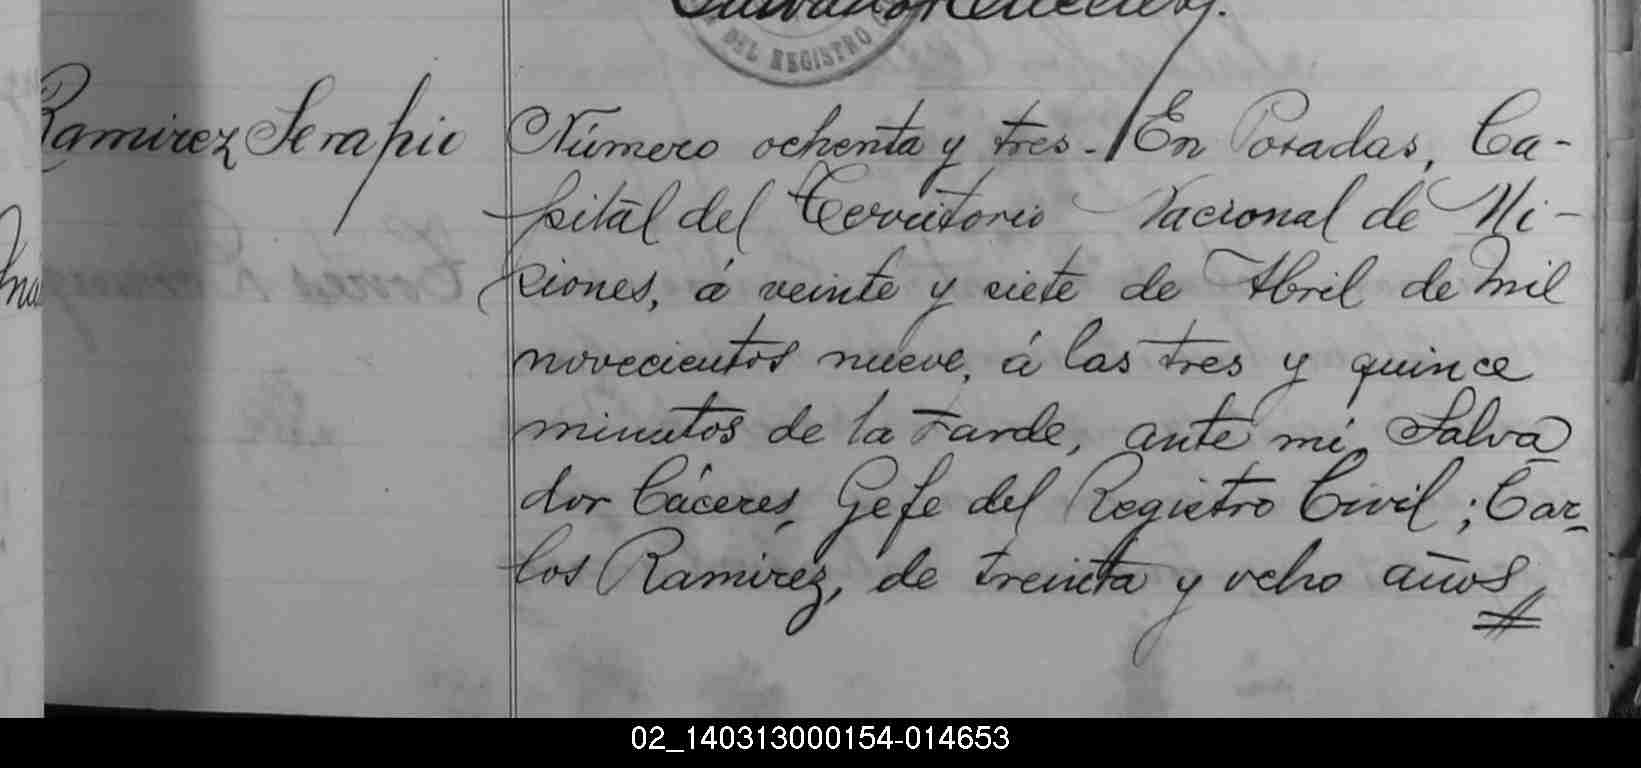 DEL REGISTRO
Ramirez Serapio
Número ochenta y tres. En Posadas, Ca-
pital del Territorio Nacional de Mi-
siones, á veinte y siete de Abril de mil
novecientos nueve, á las tres y quince
minutos de la tarde, ante mi, Salva
dor Cáceres, Gefe del Registro Civil; Car-
los Ramirez, de treinta y ocho años,
02_140313000154-014653